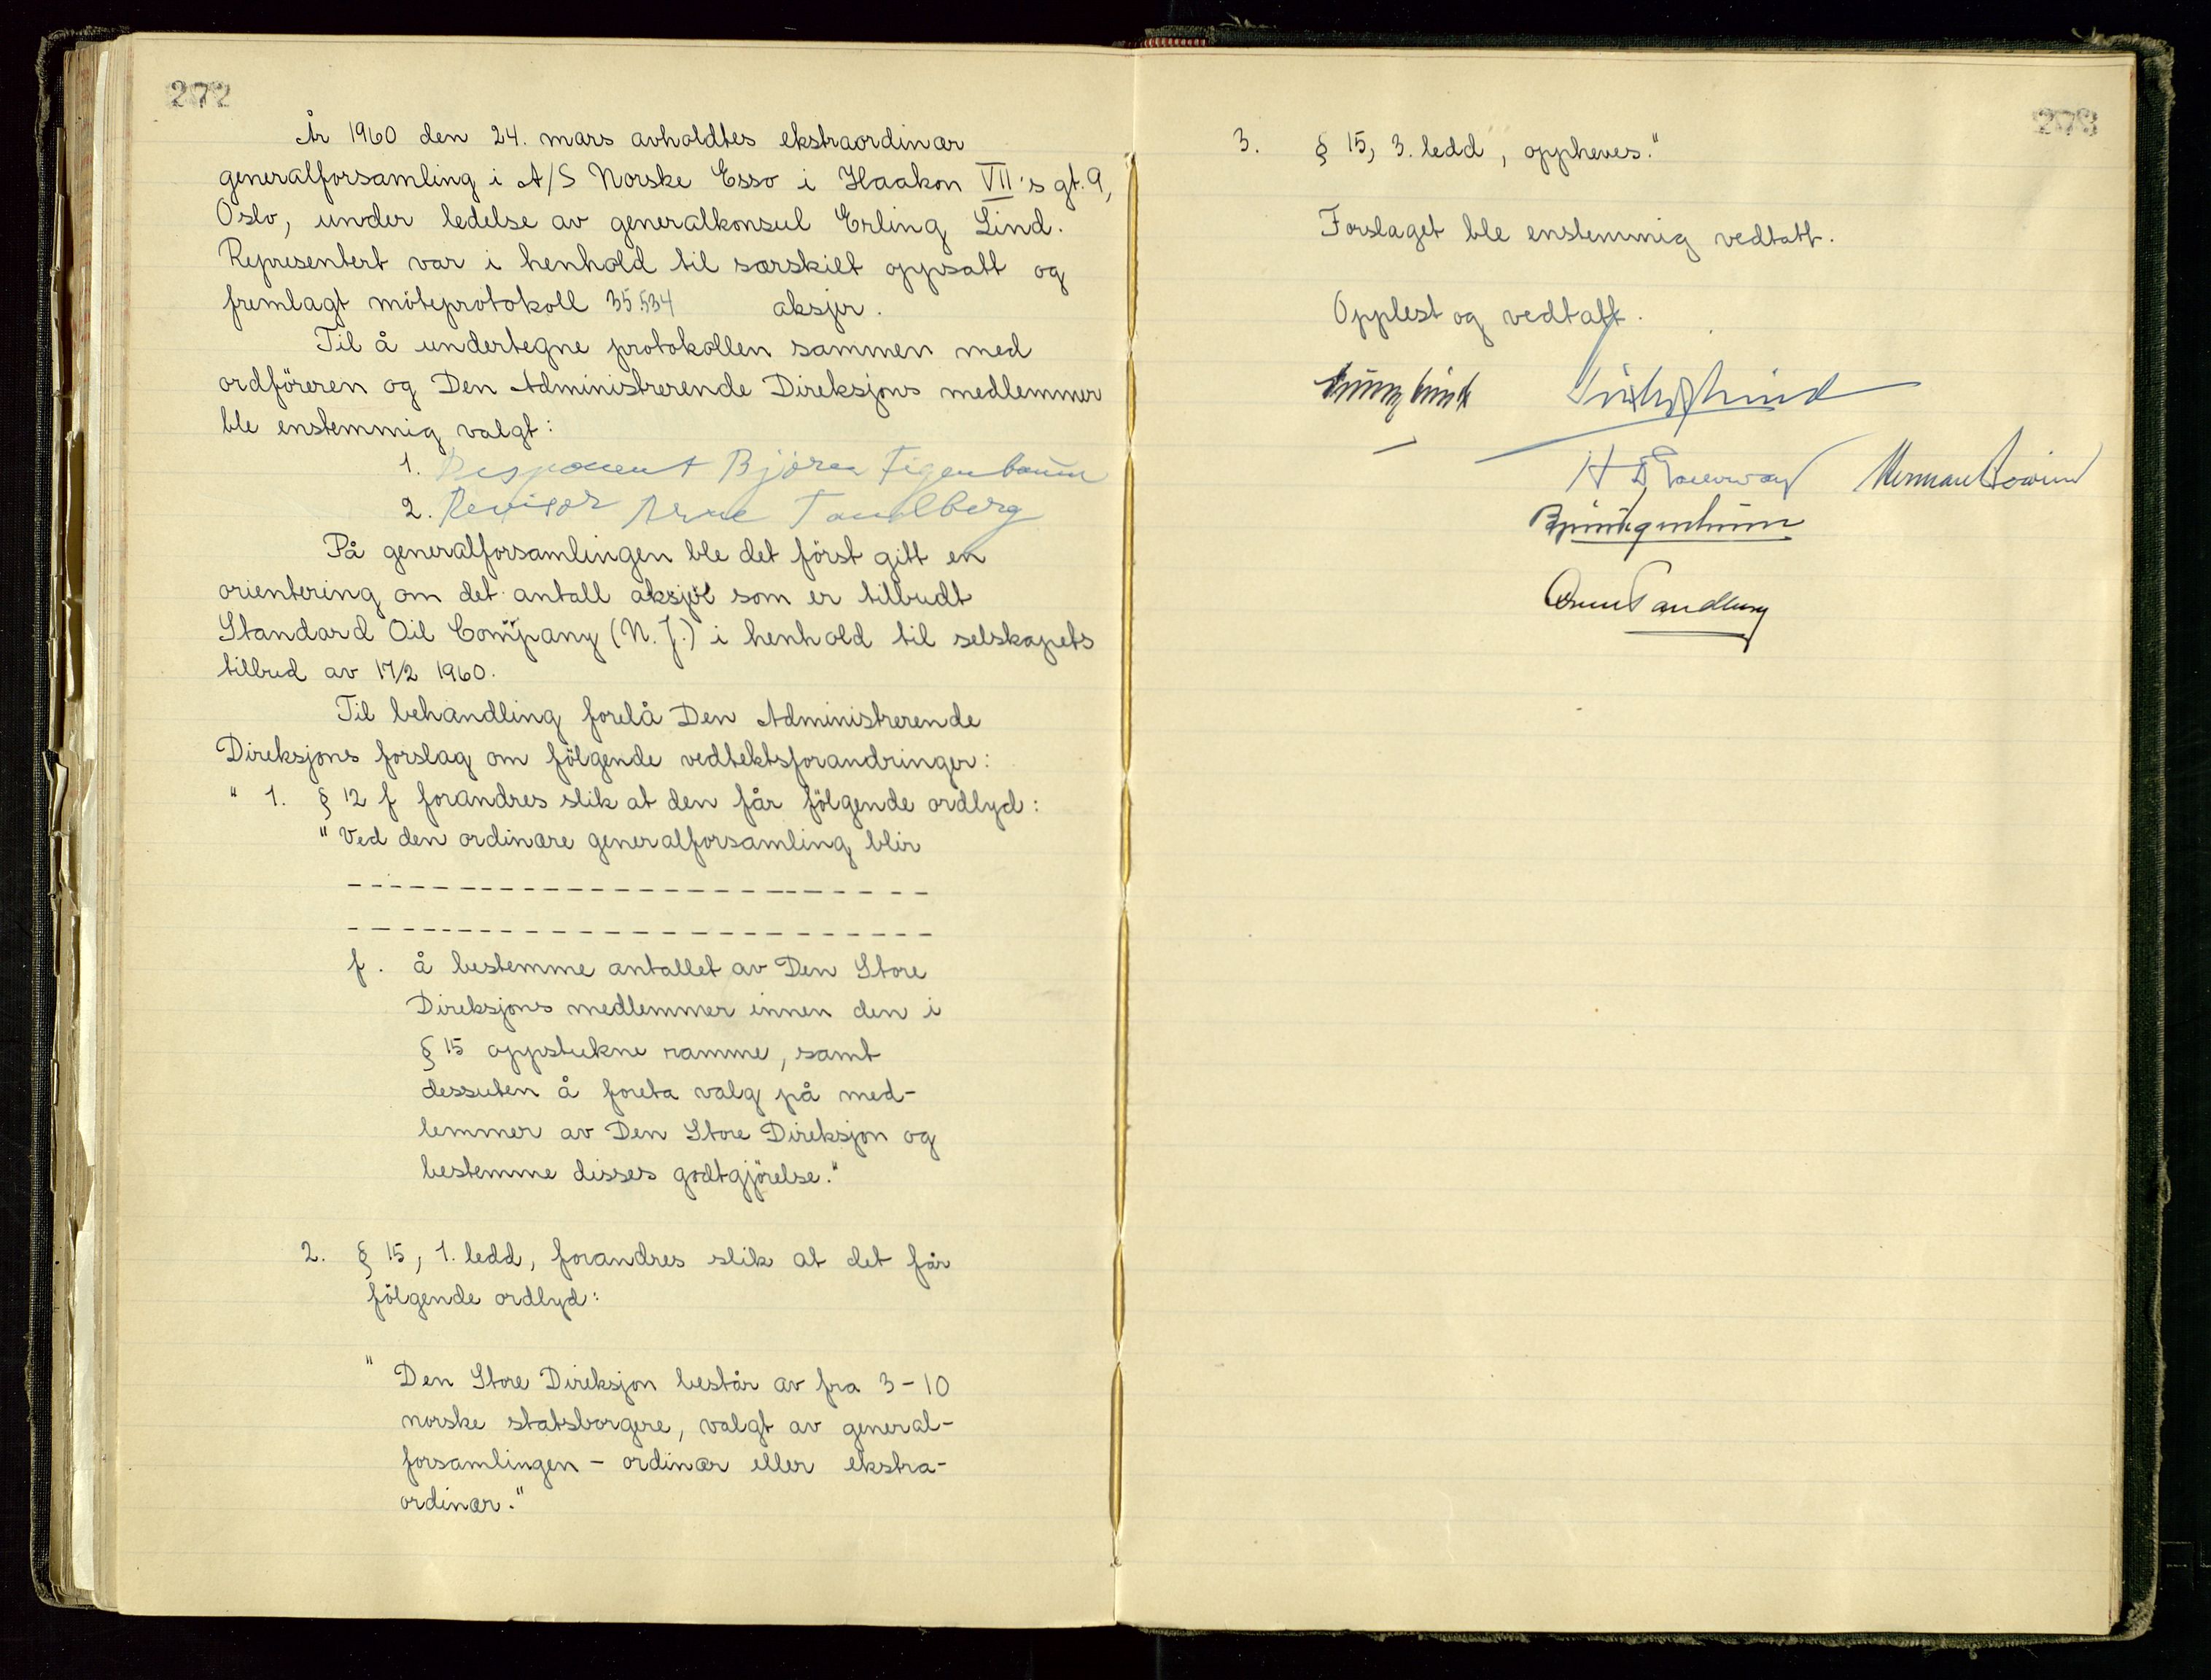 272
År 1960 den 24. mars avholdtes ekstraordinær
generalforsamling i A/S Norske Esso i Haakon VII's gt. 9,
Oslo, under ledelse av generalkonsul Erling Lind.
Representert var i henhold til særskilt oppsatt og
fremlagt möteprotokoll 35.534 aksjer.
Til å undertegne protokollen sammen med
ordföreren og Den Administrerende Direksjons medlemmer
ble enstemmig valgt:
1. Disponent Björn Figenbaum
2. Revisor Arne Tandberg
På generalforsamlingen ble det först gitt en
orientering om det antall aksjer som er tilbudt
Standard Oil Company (N.J.) i henhold til selskapets
tilbud av 17/2 1960.
Til behandling forelå Den Administrerende
Direksjons forslag om fölgende vedtektsforandringer:
" 1. § 12 f forandres slik at den får fölgende ordlyd:
"Ved den ordinære generalforsamling blir
- - - - - - - - - - - - - - - - - - - - - - - -
- - - - - - - - - - - - - - - - - - - - - - - -
f. å bestemme antallet av Den Store
Direksjons medlemmer innen den i
§ 15 oppstukne ramme, samt
dessuten å foreta valg på med-
lemmer av Den Store Direksjon og
bestemme disses godtgjörelse."
2. § 15, 1. ledd, forandres slik at det får
fölgende ordlyd:
" Den Store Direksjon består av fra 3-10
norske statsborgere, valgt av general-
forsamlingen - ordinær eller ekstra-
ordinær."
273
3. § 15, 3. ledd, oppheves."
Forslaget ble enstemmig vedtatt.
Opplest og vedtatt.